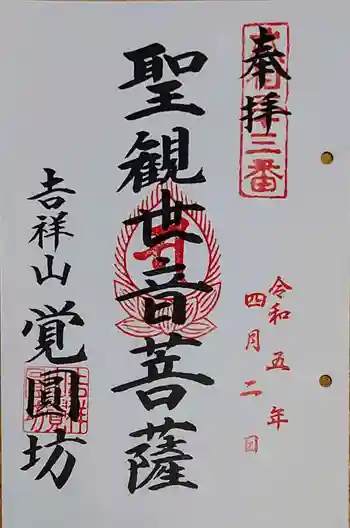 奉拝
三番
令和五年
四月二日
聖観世音菩薩
吉祥山 覚圓坊